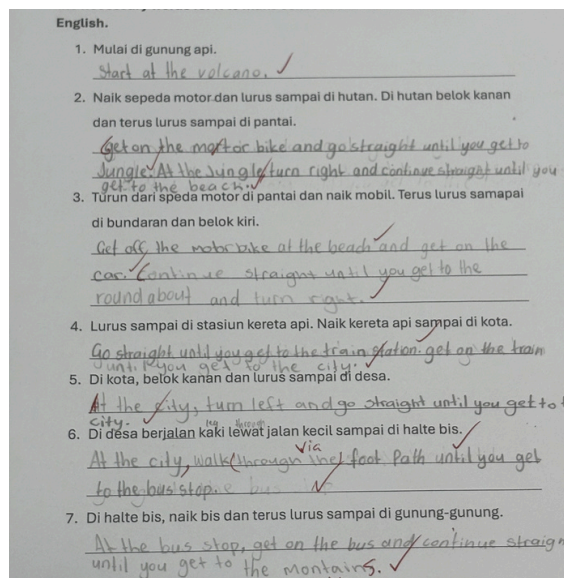 English.
1. Mulai di gunung api.
Start at the volcano.
2. Naik sepeda motor dan lurus sampai di hutan. Di hutan belok kanan
dan terus lurus sampai di pantai.
Get on the motor bike and go straight until you get to
Jungle. At the Jungle turn right and continue straight until you
get to the beach.
3. Turun dari speda motor di pantai dan naik mobil. Terus lurus samapai
di bundaran dan belok kiri.
Get off the motor bike at the beach and get on the
car. Continue straight until you get to the
round about and turn right.
4. Lurus sampai di stasiun kereta api. Naik kereta api sampai di kota.
Go straight until you get to the train station. get on the train
until you get to the city.
5. Di kota, belok kanan dan lurus sampai di desa.
At the city, turn left and go straight until you get to
city.
leg through
6. Di desa berjalan kaki lewat jalan kecil sampai di halte bis.
via
At the city, walk (through the) foot Path until you get
to the bus stop.
7. Di halte bis, naik bis dan terus lurus sampai di gunung-gunung.
At the bus stop, get on the bus and continue straigh
until you get to the montains.